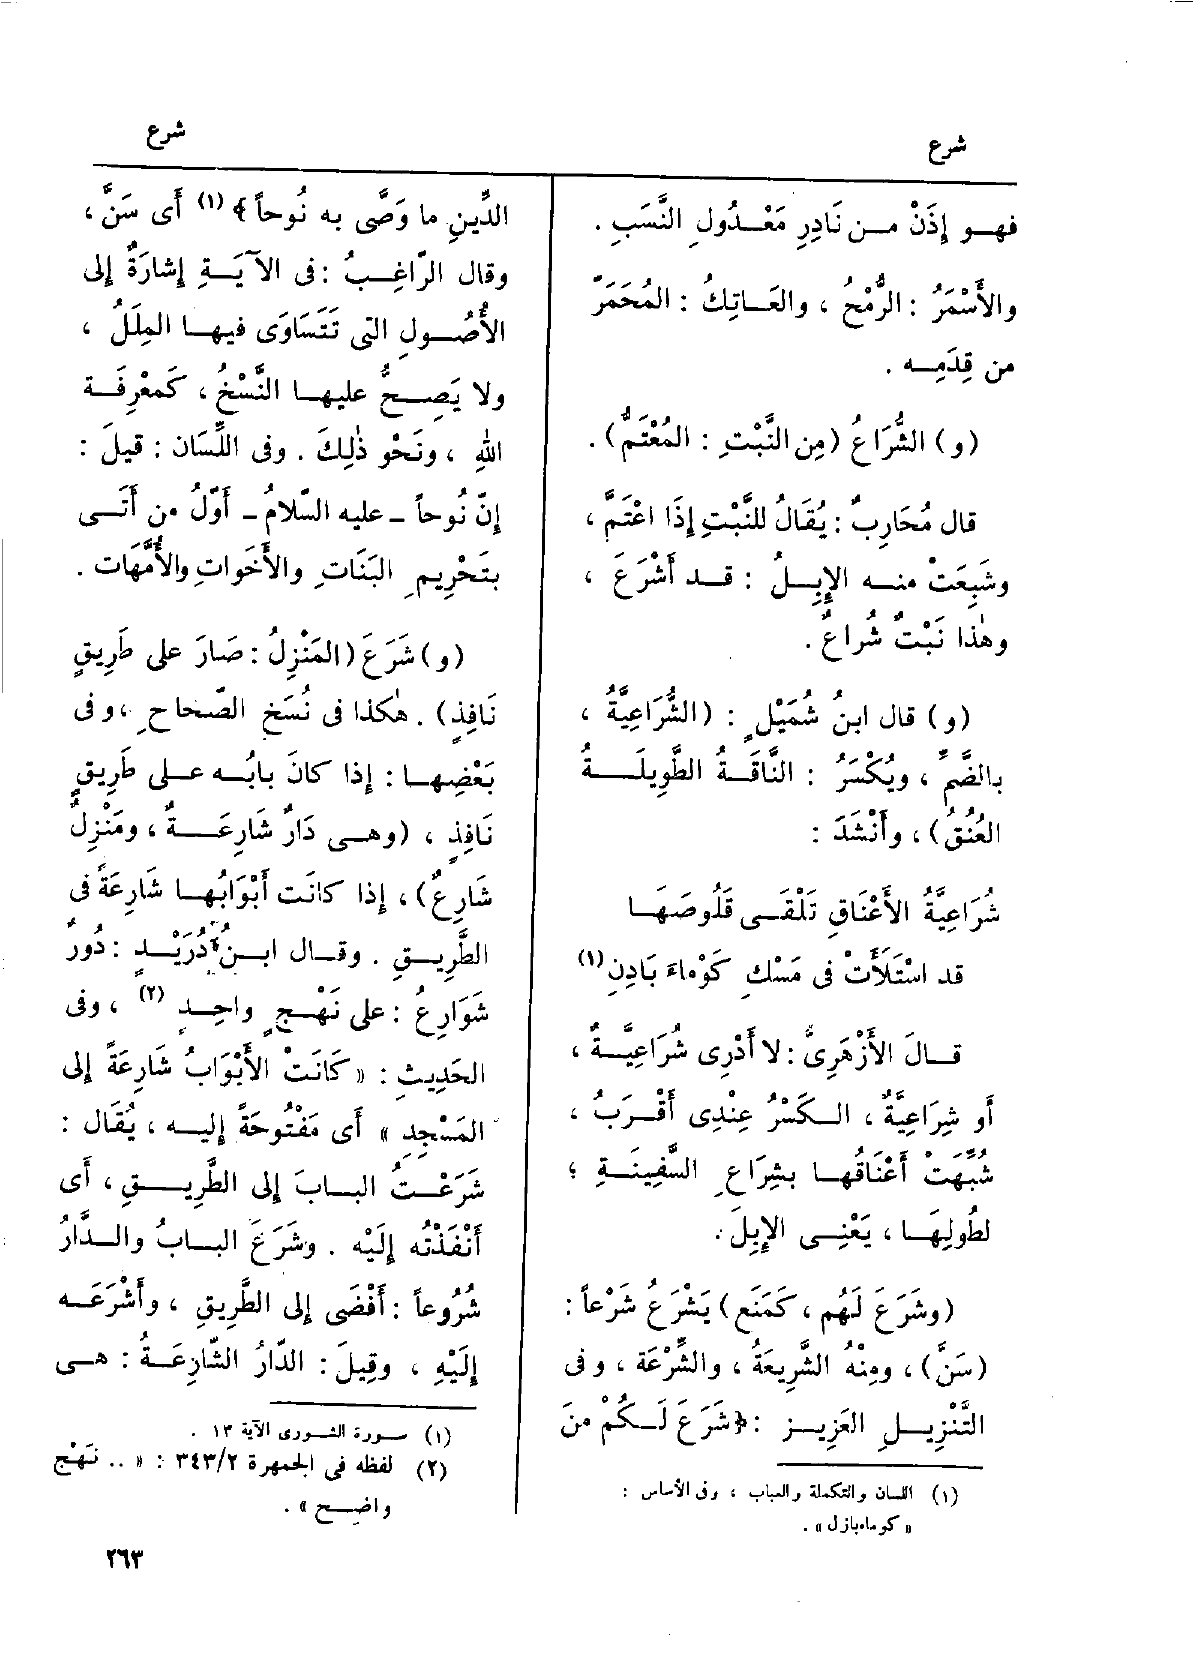 شرع
شرع
فهو إِذَنْ من نَادِرِ مَعْدُولِ النَّسَبِ .
والأَسْمَرُ : الرُّمْحُ ، والعَاتِكُ : المُحْمَرّ
من قِدَمِه .
(و) الشُّرَاعُ (مِن النَّبْتِ : المُعْتَمُّ) .
قال مُحَارِبٌ : يُقَالُ للنَّبْتِ إِذَا اعْتَمَّ ،
وشَبِعَتْ منه الإِبِلُ : قد أَشْرَعَ ،
وهٰذا نَبْتٌ شُراعٌ .
(و) قال ابنُ شُمَيْلٍ : (الشُّرَاعِيَّةُ ،
بالضَّمِّ ، ويُكْسَرُ : النَّاقَةُ الطَّوِيلَةُ
العُنُقُ) ، وأَنْشَدَ :
شُرَاعِيَّةُ الأَعْنَاقِ تَلْقَى قَلُوصَهَا
قد اسْتَلَأَتْ فى مَسْكِ كَوْماءَ بَادِنِ (١)
قالَ الأَزْهَرِىُّ : لا أَدْرِى شُرَاعِيَّةٌ ،
أو شِرَاعِيَّةٌ ، الكَسْرُ عِنْدِى أَقْرَبُ ،
شُبِّهَتْ أَعْنَاقُها بشِرَاعِ السَّفِينَةِ ؛
لطُولِهَا ، يَعْنِى الإِبِلَ .
(وشَرَعَ لَهُم ، كَمَنَع) يَشْرَعُ شَرْعاً :
(سَنَّ) ، ومِنْهُ الشَّرِيعَةُ ، والشِّرْعَة ، وفى
التَّنْزِيلِ العَزِيز : ﴿ شَرَعَ لَكُمْ مِنَ
(١) اللسان والتكملة والعباب ، وفى الأساس :
« كوماء بازل » .
الدِّينِ ما وَصَّى به نُوحاً ﴾ (١) أَى سَنَّ ،
وقال الرّاغِبُ : فى الآيَةِ إِشارَةٌ إِلى
الأُصُولِ التى تَتَسَاوَى فيها المِلَلُ ،
ولا يَصِحُّ عليها النَّسْخُ ، كَمعْرِفَة
اللهِ ، ونَحْو ذٰلِكَ . وفى اللِّسَان : قيلَ :
إِنّ نُوحاً - عليه السّلامُ - أَوّلُ من أَتَى
بتَحْرِيمِ البَنَاتِ والأَخَواتِ والأُمَّهَات .
(و) شَرَعَ (المَنْزِلُ : صَارَ على طَرِيقٍ
نَافِذٍ) . هٰكذا فى نُسَخِ الصّحاحِ ، وفى
بَعْضِها : إِذا كانَ بابُه على طَرِيقٍ
نَافِذٍ ، (وهى دَارٌ شَارِعَةٌ ، ومَنْزِلٌ
شَارِعٌ) ، إذا كانَت أَبْوَابُها شَارِعَةً فى
الطَّرِيقِ . وقال ابنُ دُرَيْدٍ : دُورٌ
شَوَارِعُ : على نَهْجٍ واحِدٍ (٢) ، وفى
الحَدِيثِ : « كَانَتْ الأَبْوَابُ شَارِعَةً إِلى
المَسْجِدِ » أى مَفْتُوحَةً إِليه ، يُقَال :
شَرَعْتُ البابَ إلى الطَّرِيقِ ، أَى
أَنْفَذْتُه إِلَيْه . وشَرَعَ البابُ والدَّارُ
شُرُوعاً : أَفْضَى إلى الطَّرِيقِ ، وأَشْرَعَه
إِلَيْهِ ، وقِيلَ : الدّارُ الشّارِعَةُ : هى
(١) سورة الشورى الآية ١٣ .
(٢) لفظه فى الجمهرة ٣٤٣/٢ : « .. نَهْج
واضح » .
٢٦٣